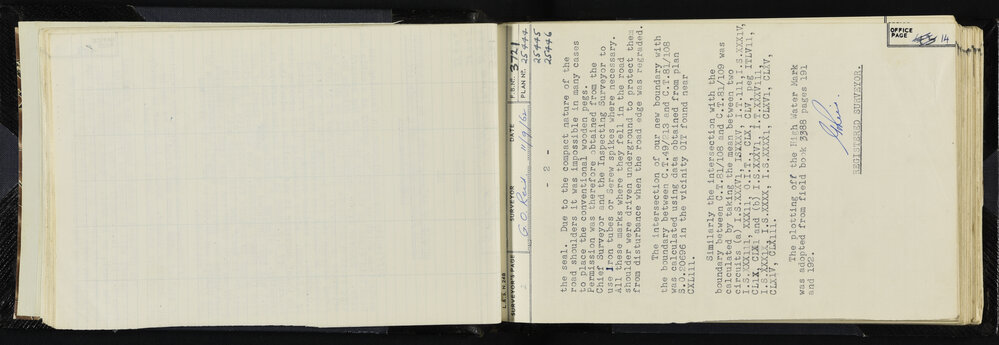 L.& S.W. 249
SURVEYOR'S PAGE 2
SURVEYOR G. O. Rees
DATE 11/9/62
F.B. Nº 3721
PLAN Nº. 25444
25445
25446
OFFICE PAGE 14
- 2 -
the seal. Due to the compact nature of the
road shoulders it was impossible in many cases
to place the conventional wooden pegs.
Permission was therefore obtained from the
Chief Surveyor and the Inspecting Surveyor to
use Iron tubes or Screw spikes where necessary.
All these marks where they fell in the road
shoulder were driven underground to protect them
from disturbance when the road edge was regraded.
The intersection of our new boundary with
the boundary between C.T.49/213 and C.T.81/108
was calculated using data obtained from plan
S.O.20696 in the vicinity OIT found near
CXLIII.
Similarly the intersection with the
boundary between C.T.81/108 and C.T.81/109 was
calculated by taking the mean between two
circuits (a) I.S.XXXVI, I.T.III, I.S.XXXIV,
I.S.XXXIII, XXXII, O.I.T. CLX, CLV, peg ITLVII,
CLIX, CLXI and (b) I.S.XXXVII, I.T.XXXVIII,
I.S.XXXIX, I.S.XXXX, I.S.XXXXI, CLXVI, CLXV,
CLXIV, CLXIII.
The plotting off the High Water Mark
was adopted from field book 3388 pages 191
and 192.
REGISTERED SURVEYOR.